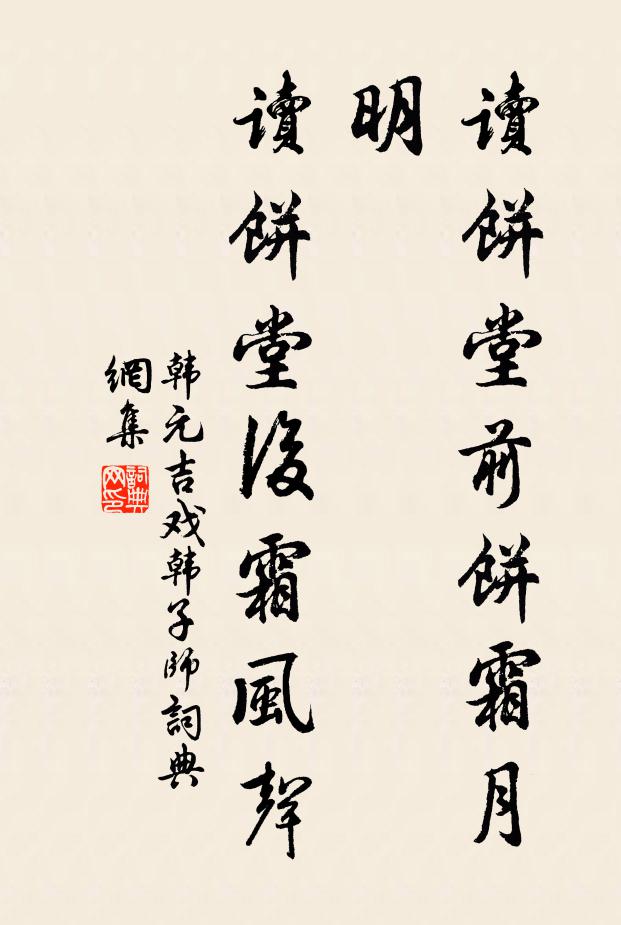 讀餅堂前餅霜月
明
讀餅堂後霜風聲
韩元吉戏韩子師詞典
網集
詞典
网印